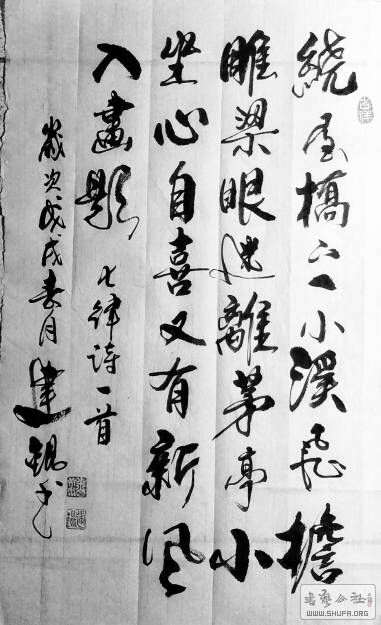 繞屋橋下一小溪飛檐
雕梁眼迷離茅亭小
坐心自喜又有新風
入畫題 七律诗一首
歲次戊戌春月建
吉祥
書藝公社
WWW.SHUFA.ORG